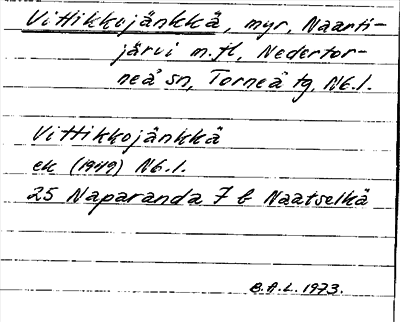 Vittikkojänkkä, myr, Naarti-
järvi m.fl, Nedertor-
neå sn, Torneå tg, Nb.l.
Vittikkojänkkä
ek (1949) Nb.l.
25 Naparanda 7 b Naatselkä
B.A.L. 1973.